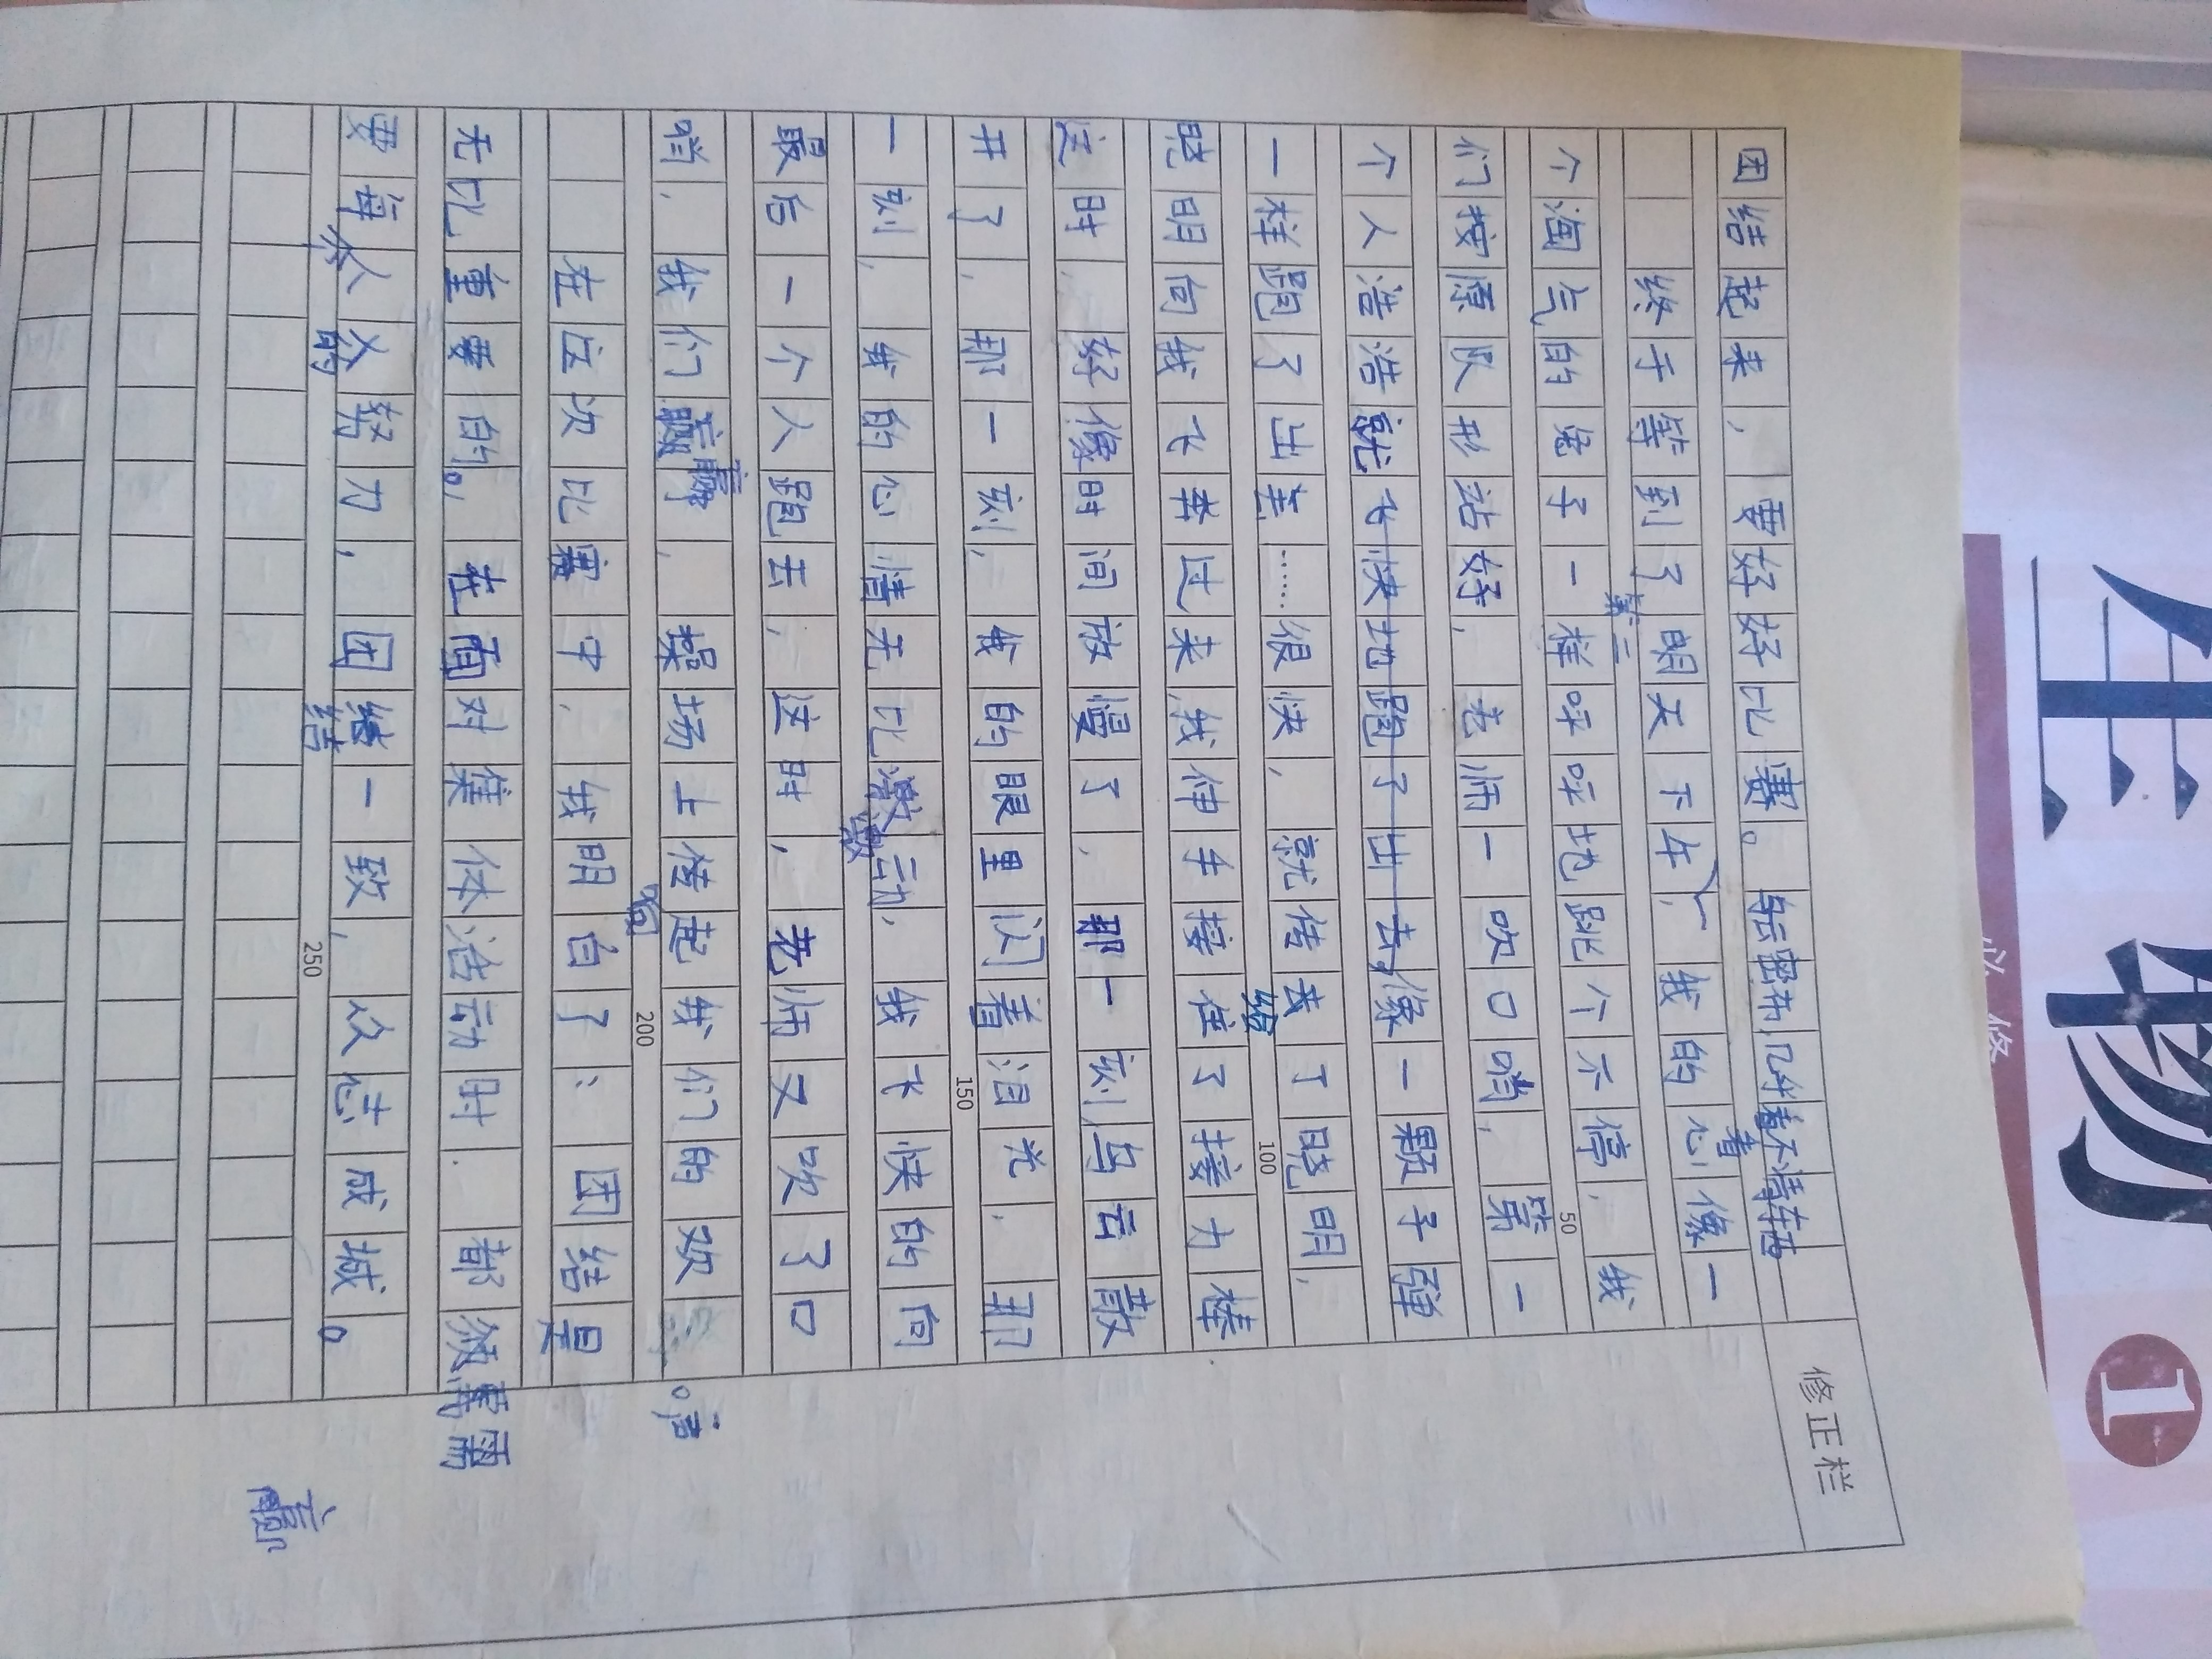 团结起来，要好好比赛。乌云密布，几乎看不清东西
终于等到了第二天下午，我的心像一
个淘气的兔子一样呼呼地跳个不停，我
们按原队形站好，老师一吹口哨，第一
个人浩浩就飞快地跑了出去，像一颗子弹
一样跑了出去……很快，就传给了晓明，
晓明向我飞奔过来，我伸手接住了接力棒
这时，好像时间放慢了，那一刻乌云散
开了，那一刻，我的眼里闪着泪光，那
一刻，我的心情无比激动，我飞快的向
最后一个人跑去，这时，老师又吹了口
哨，我们赢，操场上传起我们的欢呼声。
在这次比赛中，我明白了：团结是
无比重要的。在面对集体活动时，都须要需
要每个人的努力，团结一致，众志成城。
50
100
150
200
250
修正栏
赢
生物
必修
1